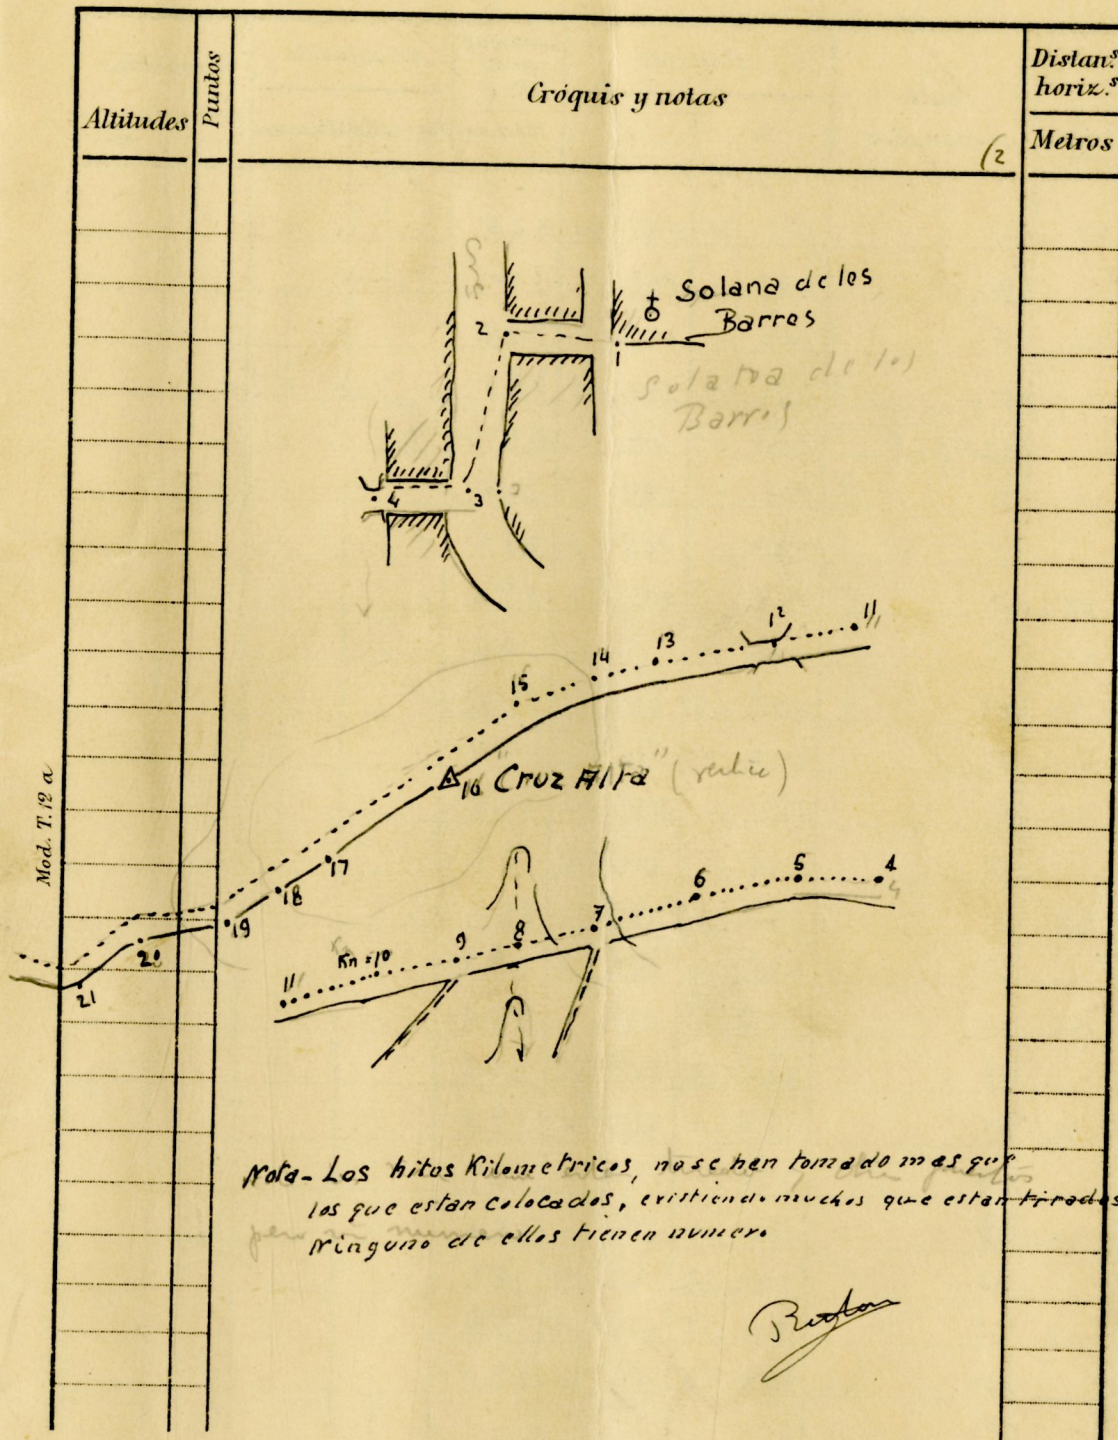 Altitudes
Puntos
Cróquis y notas
Distan.s
horiz.s
Metros
(2
Solana de los
Barros
2
1
Solana de los
Barros
4
3
11
12
13
14
15
16 "Cruz Alta" (vertice)
17
18
19
20
21
4
5
6
7
8
9
Km = 10
11
Mod. T. 12 a
Nota - Los hitos Kilometricos, no se han tomado mas que
los que estan colocados, existiendo muchos que estan tirados
Ninguno de ellos tienen numero